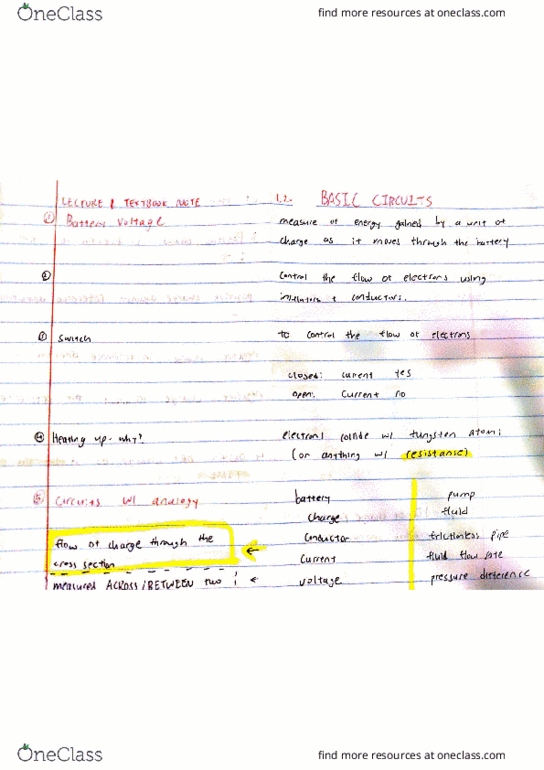 OneClass
find more resources at oneclass.com
LECTURE & TEXTBOOK NOTE
1.2. BASIC CIRCUITS
① Battery Voltage
measure of energy gained by a unit of
charge as it moves through the battery
②
control the flow of electrons using
insulators + conductors.
Switch
to control the flow of electrons
closed: current yes
open: current no
④ Heating up - why?
electrons collide w/ tungsten atoms
(or anything w/ resistance)
⑤ Circuits w/ analogy
battery pump
charge fluid
flow of charge through the
cross section
←
conductor frictionless pipe
current fluid flow rate
measured ACROSS/BETWEEN two
←
voltage pressure difference
OneClass
find more resources at oneclass.com